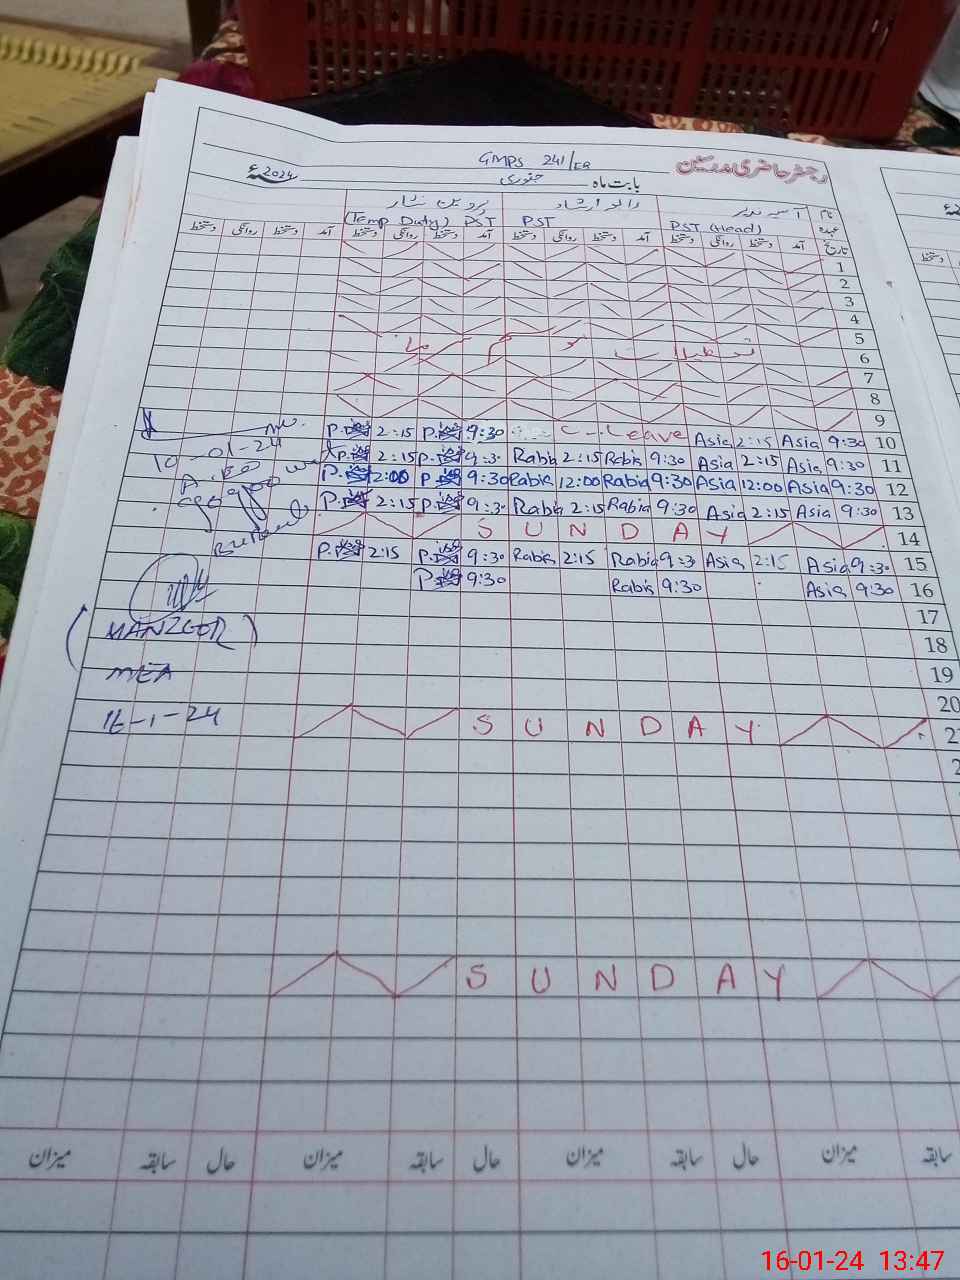 GMPS 241/EB رجسٹر حاضری مدرسین
بابت ماہ جنوری 2024ء
نام
(Temp Duty) PST PST PST (Head) عہدہ
دستخط روانگی دستخط آمد دستخط روانگی دستخط آمد دستخط روانگی دستخط آمد دستخط روانگی دستخط آمد تاریخ
1
2
3
4
5
تعطیلات موسم سرما 6
7
8
9
2:15 9:30 C-Leave Asia 2:15 Asia 9:30 10
10-01-24 2:15 9:30 Rabia 2:15 Rabia 9:30 Asia 2:15 Asia 9:30 11
2:00 9:30 Rabia 12:00 Rabia 9:30 Asia 12:00 Asia 9:30 12
2:15 9:30 Rabia 2:15 Rabia 9:30 Asia 2:15 Asia 9:30 13
SUNDAY 14
2:15 9:30 Rabia 2:15 Rabia 9:30 Asia 2:15 Asia 9:30 15
9:30 Rabia 9:30 Asia 9:30 16
17
(MANZOOR) 18
MEA 19
20
16-1-24 SUNDAY
SUNDAY
میزان سابقہ حال میزان سابقہ حال میزان سابقہ حال میزان سابقہ
16-01-24 13:47